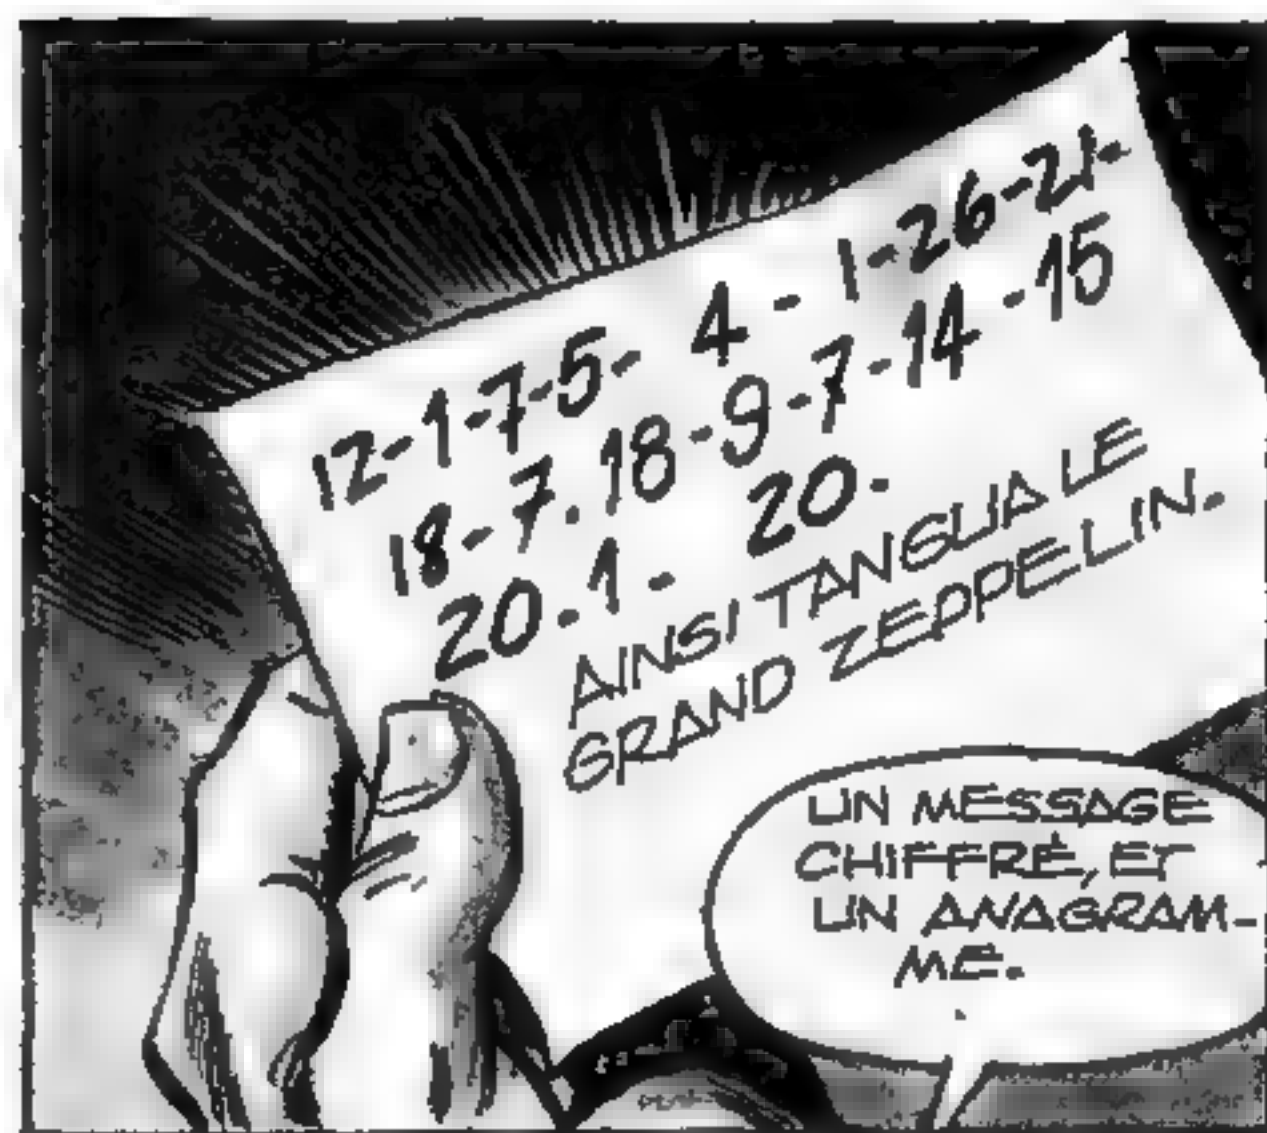 12-1-7-5- 4 - 1-26-21-
18-7. 18-9-7-14-15
20-1- 20.
AINSI TANGUA LE
GRAND ZEPPELIN.
UN MESSAGE
CHIFFRÉ, ET
UN ANAGRAM-
ME.